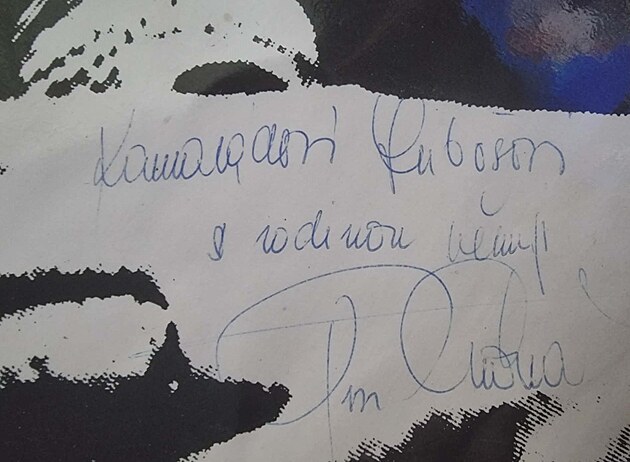 Kamarádovi Lubošovi
s rodinou věnuji